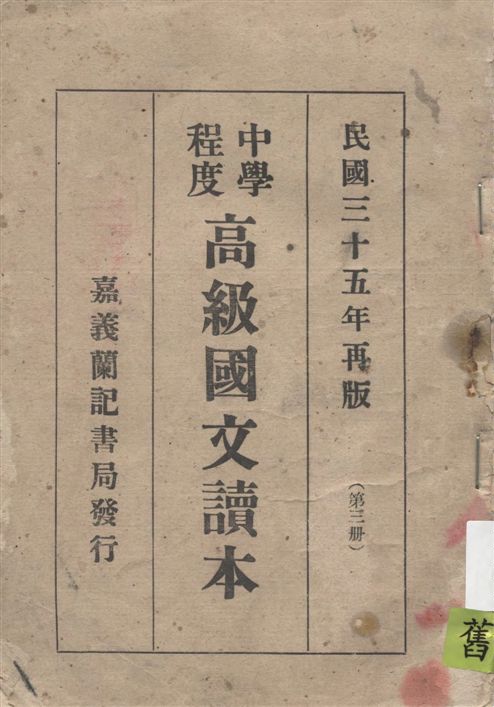 民國三十五年再版
（第三册）
中學
程度
高級國文讀本
嘉義蘭記書局發行
舊